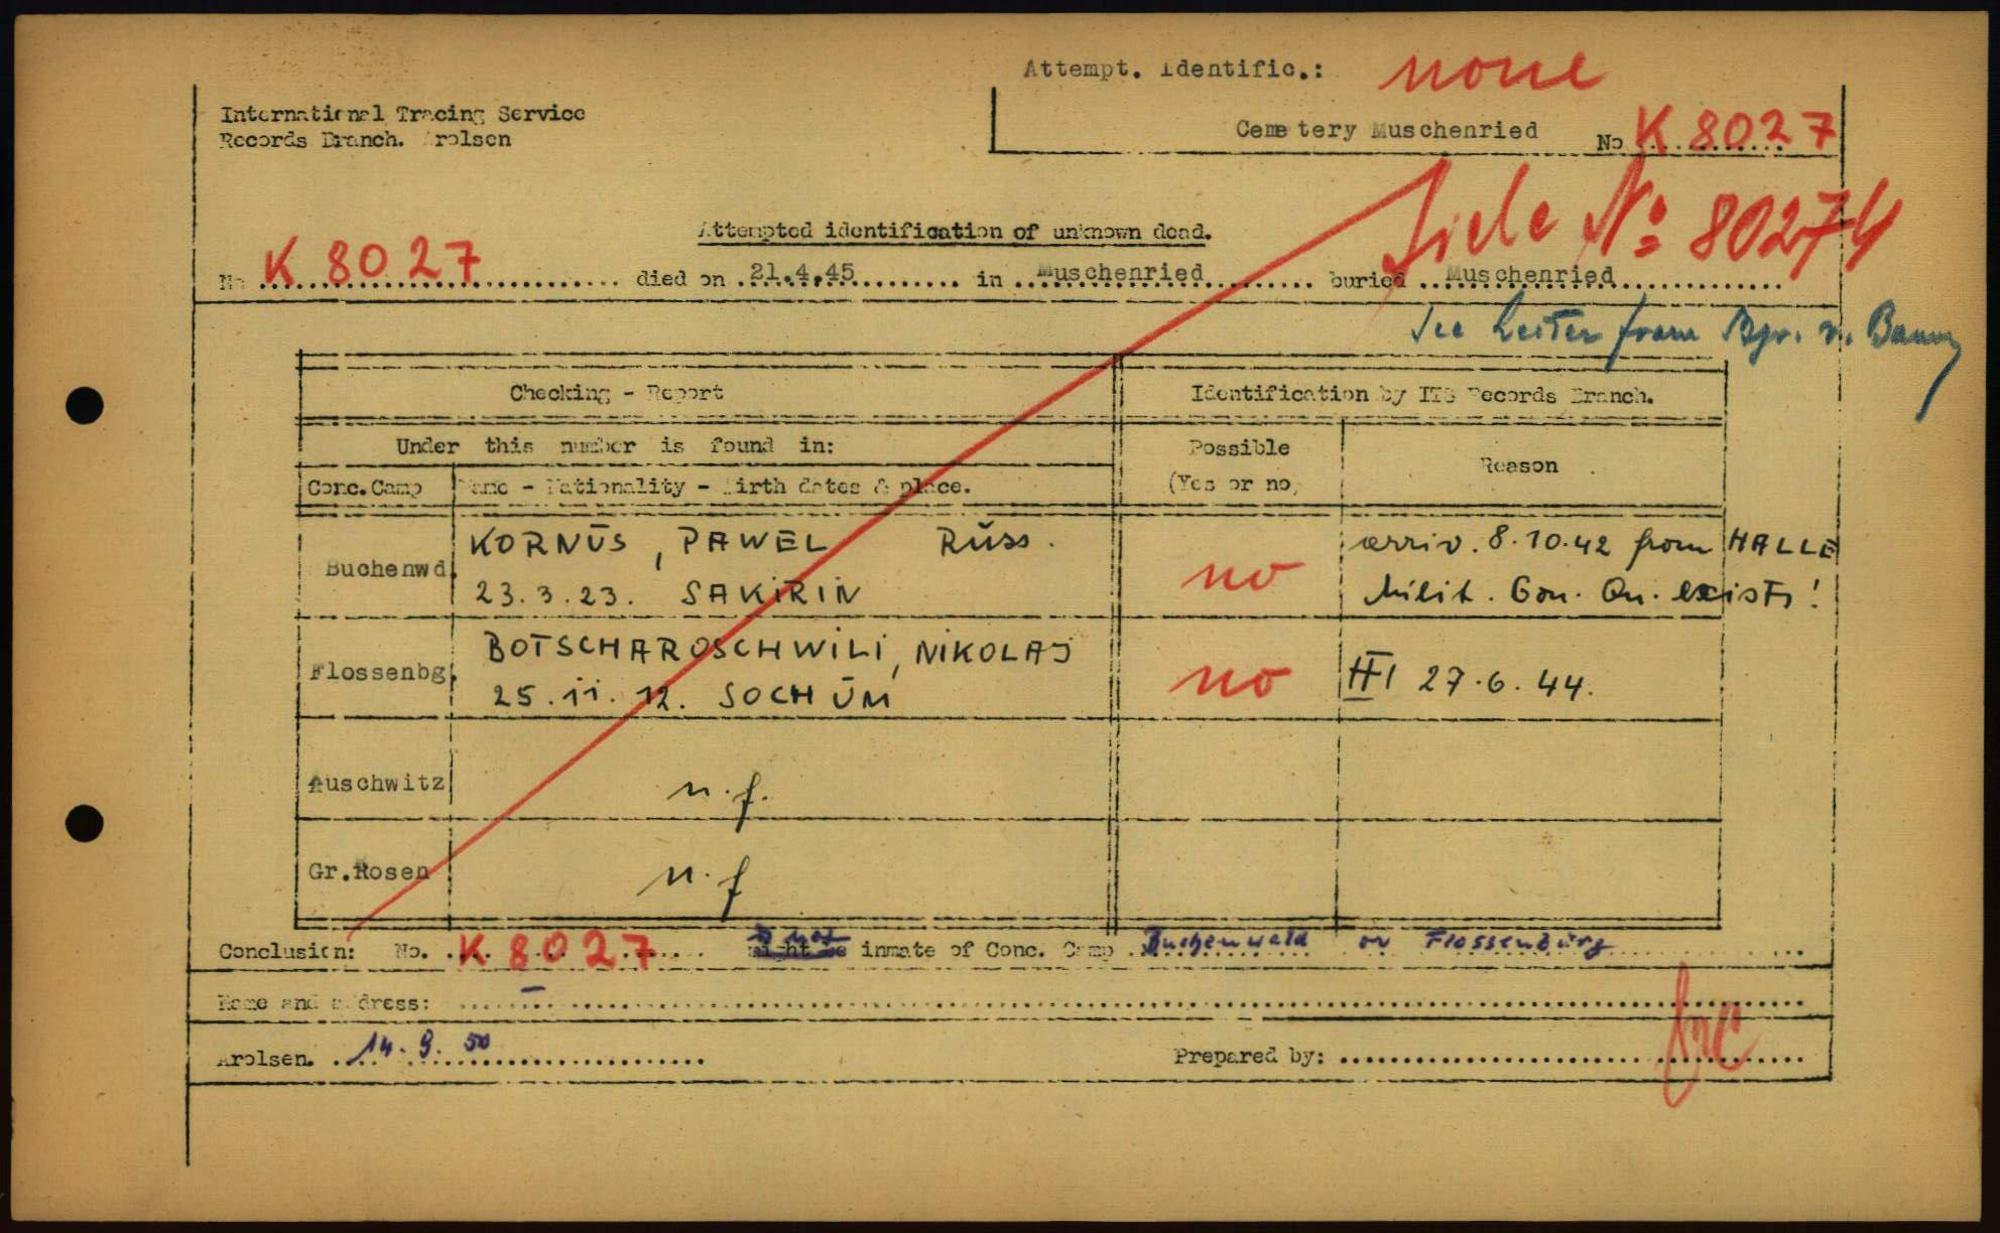 Attempt. Identific.: none
International Tracing Service
Records Branch. Arolsen
Cemetery Muschenried No K 8027
Siehe No 80274
Attempted identification of unknown dead.
No K 8027 died on 21.4.45 in Muschenried buried Muschenried
See Letter from Bgr. v.
Checking - Report
Identification by ITS Records Branch.
Under this number is found in:
Possible
(Yes or no)
Reason
Conc. Camp
Name - Nationality - Birth dates & place.
Buchenwd.
KORNUS, PAWEL Russ.
23.3.23. SAKIRIN
no
arriv. 8.10.42 from HALLE
Milit. Gov. Qu. exists!
Flossenbg.
BOTSCHAROSCHWILI, NIKOLAJ
25.11.12. SOCHUM
no
27.6.44.
Auschwitz
n.f.
Gr.Rosen
n.f
Conclusion: No. K 8027 might be inmate of Conc. Camp Buchenwald or Flossenbürg
Name and address: –
Arolsen. 14.9.50
Prepared by: